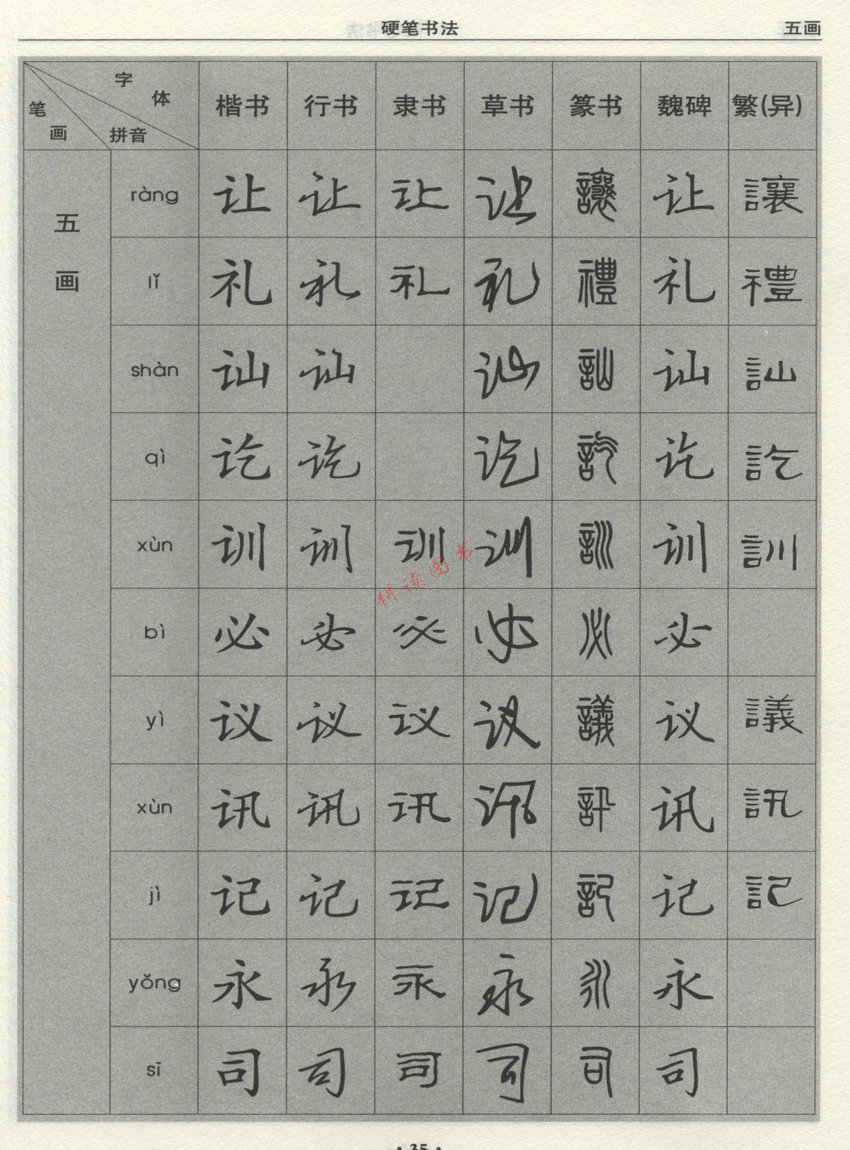 硬笔书法 五画
字体 笔画 拼音 楷书 行书 隶书 草书 篆书 魏碑 繁(异)
五画
ràng 让 让 让 让 讓 让 讓
lǐ 礼 礼 礼 礼 禮 礼 禮
shàn 讪 讪 讪 訕 讪 訕
qì 讫 讫 讫 訖 讫 訖
xùn 训 训 训 训 訓 训 訓
bì 必 必 必 必 必 必
yì 议 议 议 议 議 议 議
xùn 讯 讯 讯 讯 訊 讯 訊
jì 记 记 记 记 記 记 記
yǒng 永 永 永 永 永 永
sī 司 司 司 司 司 司
耕读图书
· 35 ·